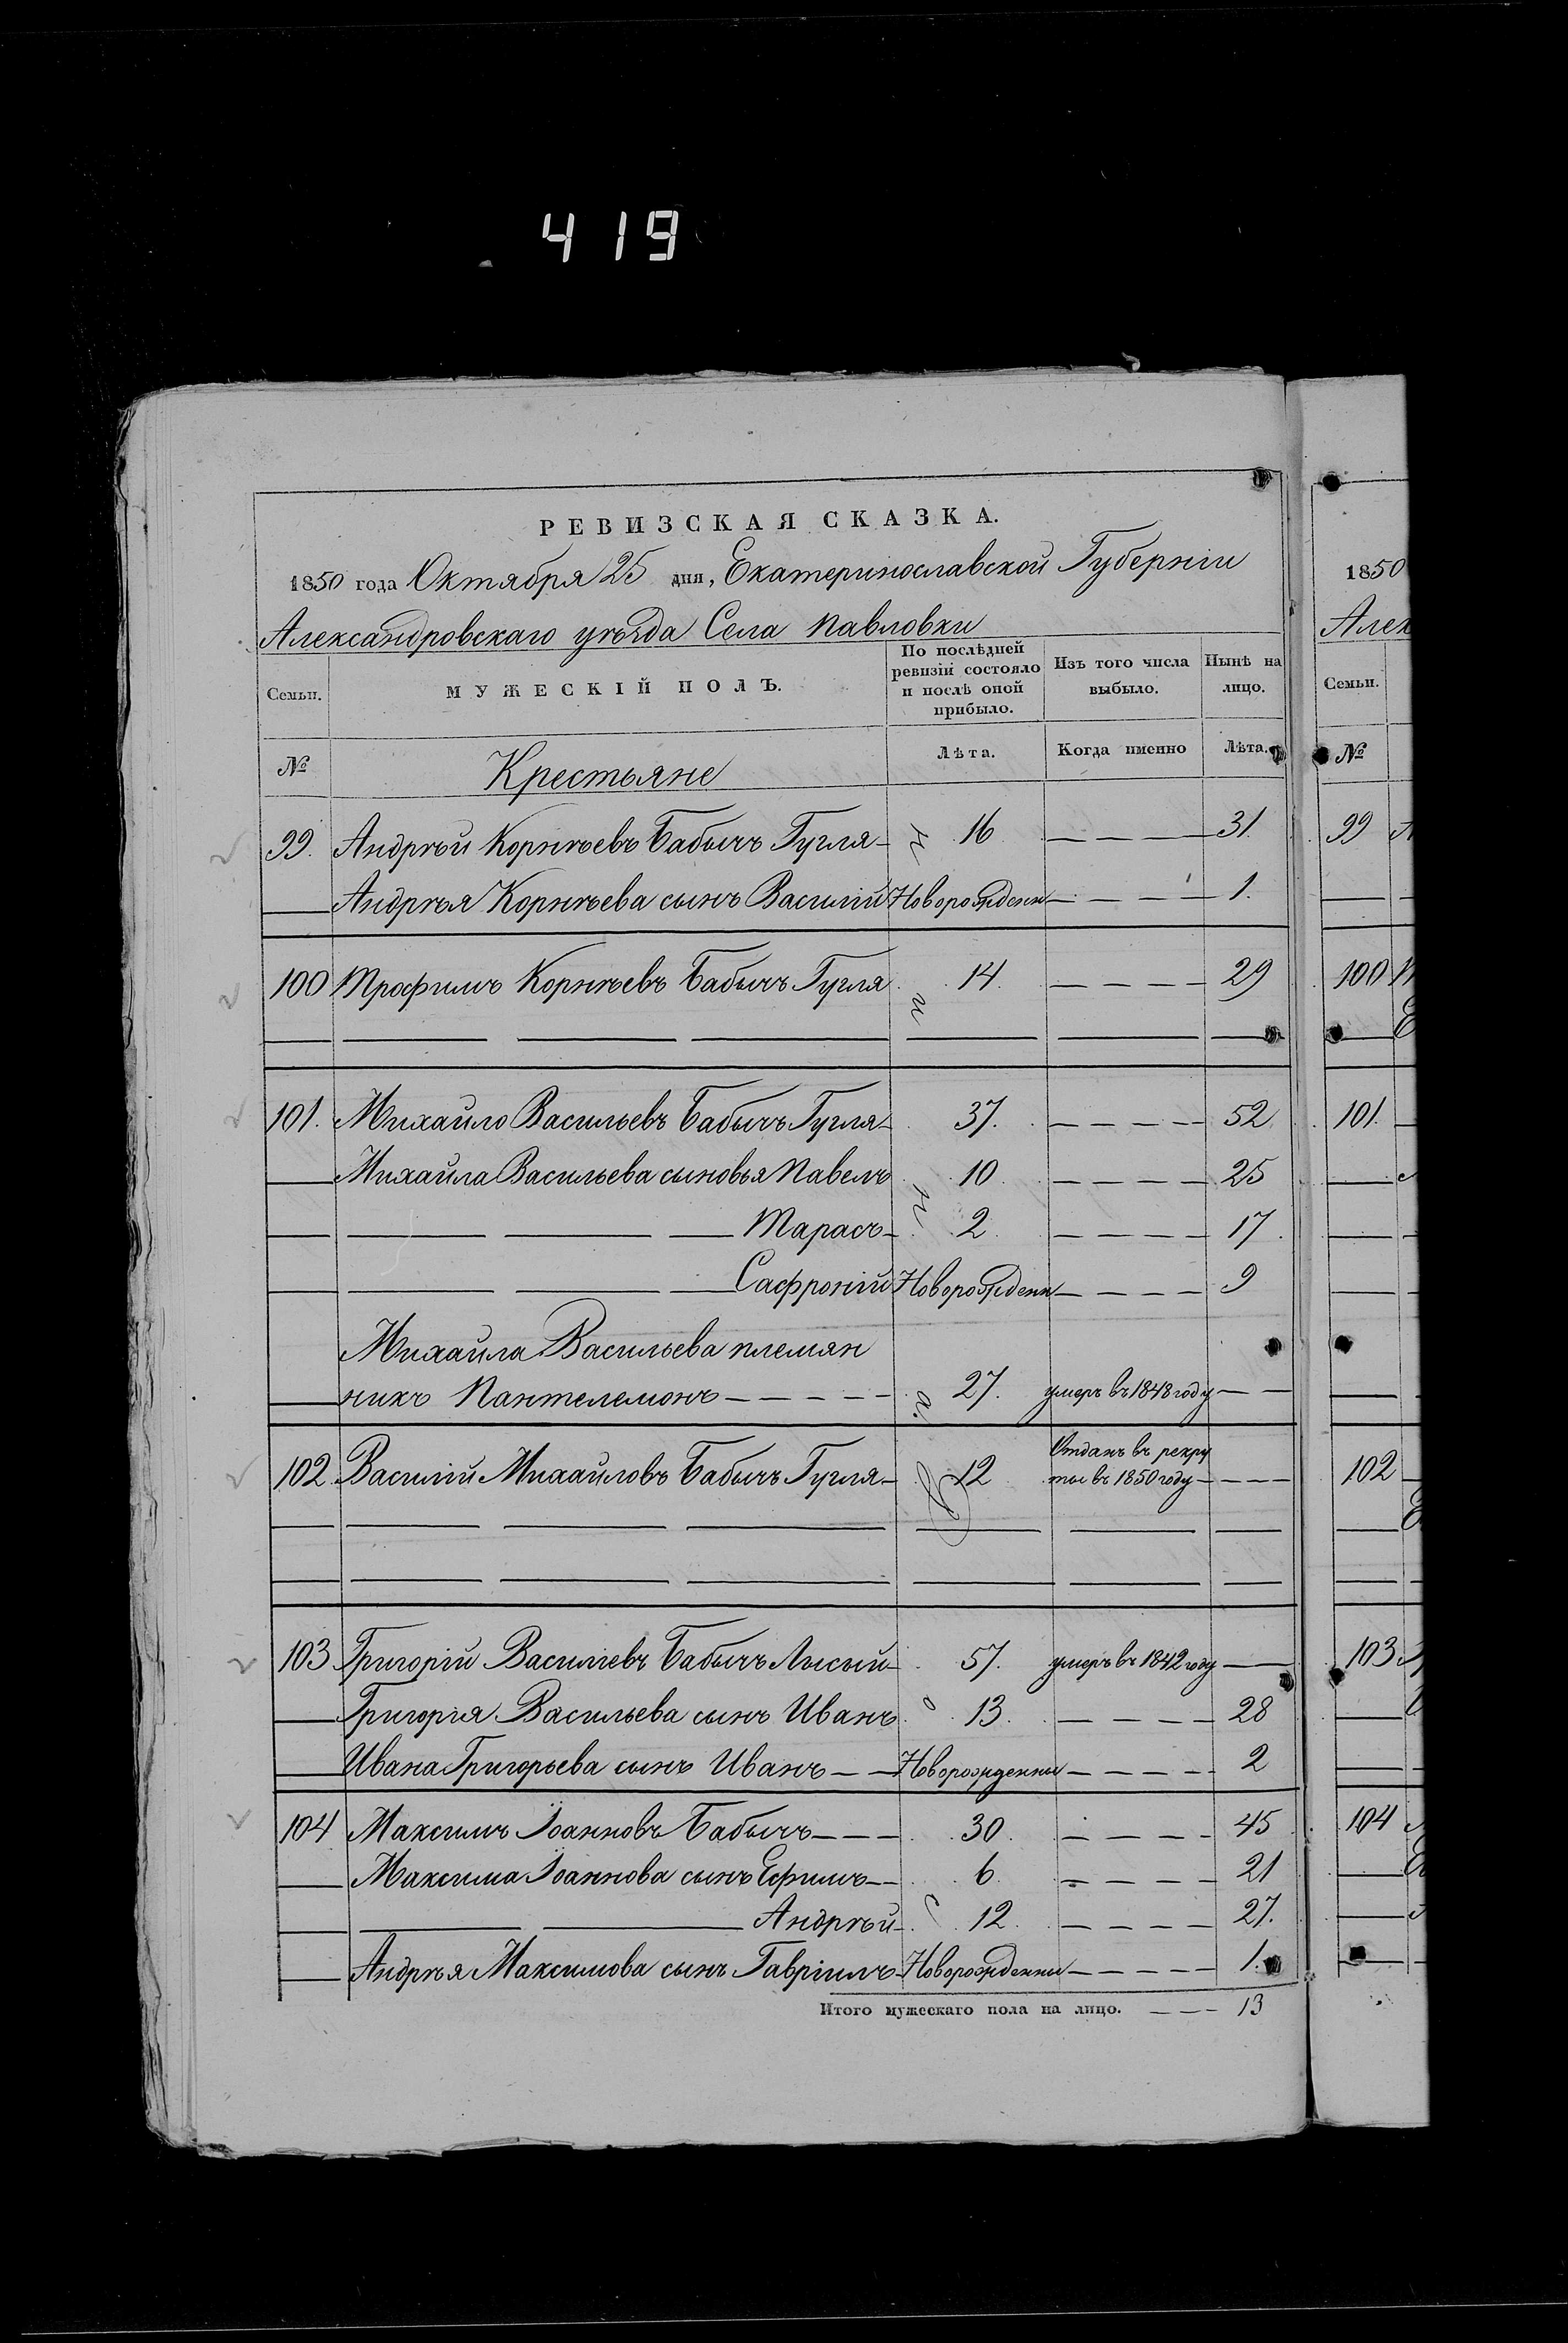 419
РЕВИЗСКАЯ СКАЗКА.
1850 года Октября 25 дня, Екатеринославской Губерніи
Александровскаго уѣзда Села Павловки
Семьи. МУЖЕСКІЙ ПОЛЪ. По послѣдней ревизіи состояло и послѣ оной прибыло. Изъ того числа выбыло. Нынѣ на лицо.
№ Крестьяне Лѣта. Когда именно Лѣта.
99. Андрѣй Корнѣевъ Бабычъ Гугля 16 31.
Андрѣя Корнѣева сынъ Василій Новорожденн 1.
100 Трофимъ Корнѣевъ Бабычъ Гугля 14. 29
101. Михайло Васильевъ Бабычъ Гугля 37. 52
Михайла Васильева сыновья Павелъ 10 25
Тарасъ 2 17.
Сафроній Новорожденн 9
Михайла Васильева племян
никъ Пантелемонъ 27. умеръ въ 1848 году
102 Василій Михайловъ Бабычъ Гугля 12 Отданъ въ рекру
ты въ 1850 году
103 Григорій Василіевъ Бабычъ Лысый 57. умеръ въ 1842 году
Григорія Васильева сынъ Иванъ 13. 28
Ивана Григорьева сынъ Иванъ Новорожденны 2
104 Максимъ Іоанновъ Бабычъ 30. 45
Максима Іоаннова сынъ Ефимъ 6. 21
Андрѣй 12. 27.
Андрѣя Максимова сынъ Гавріилъ Новорожденны 1.
Итого мужескаго пола на лицо. 13
1850
Алек
Семьи.
№
99
100
101.
102
103
104